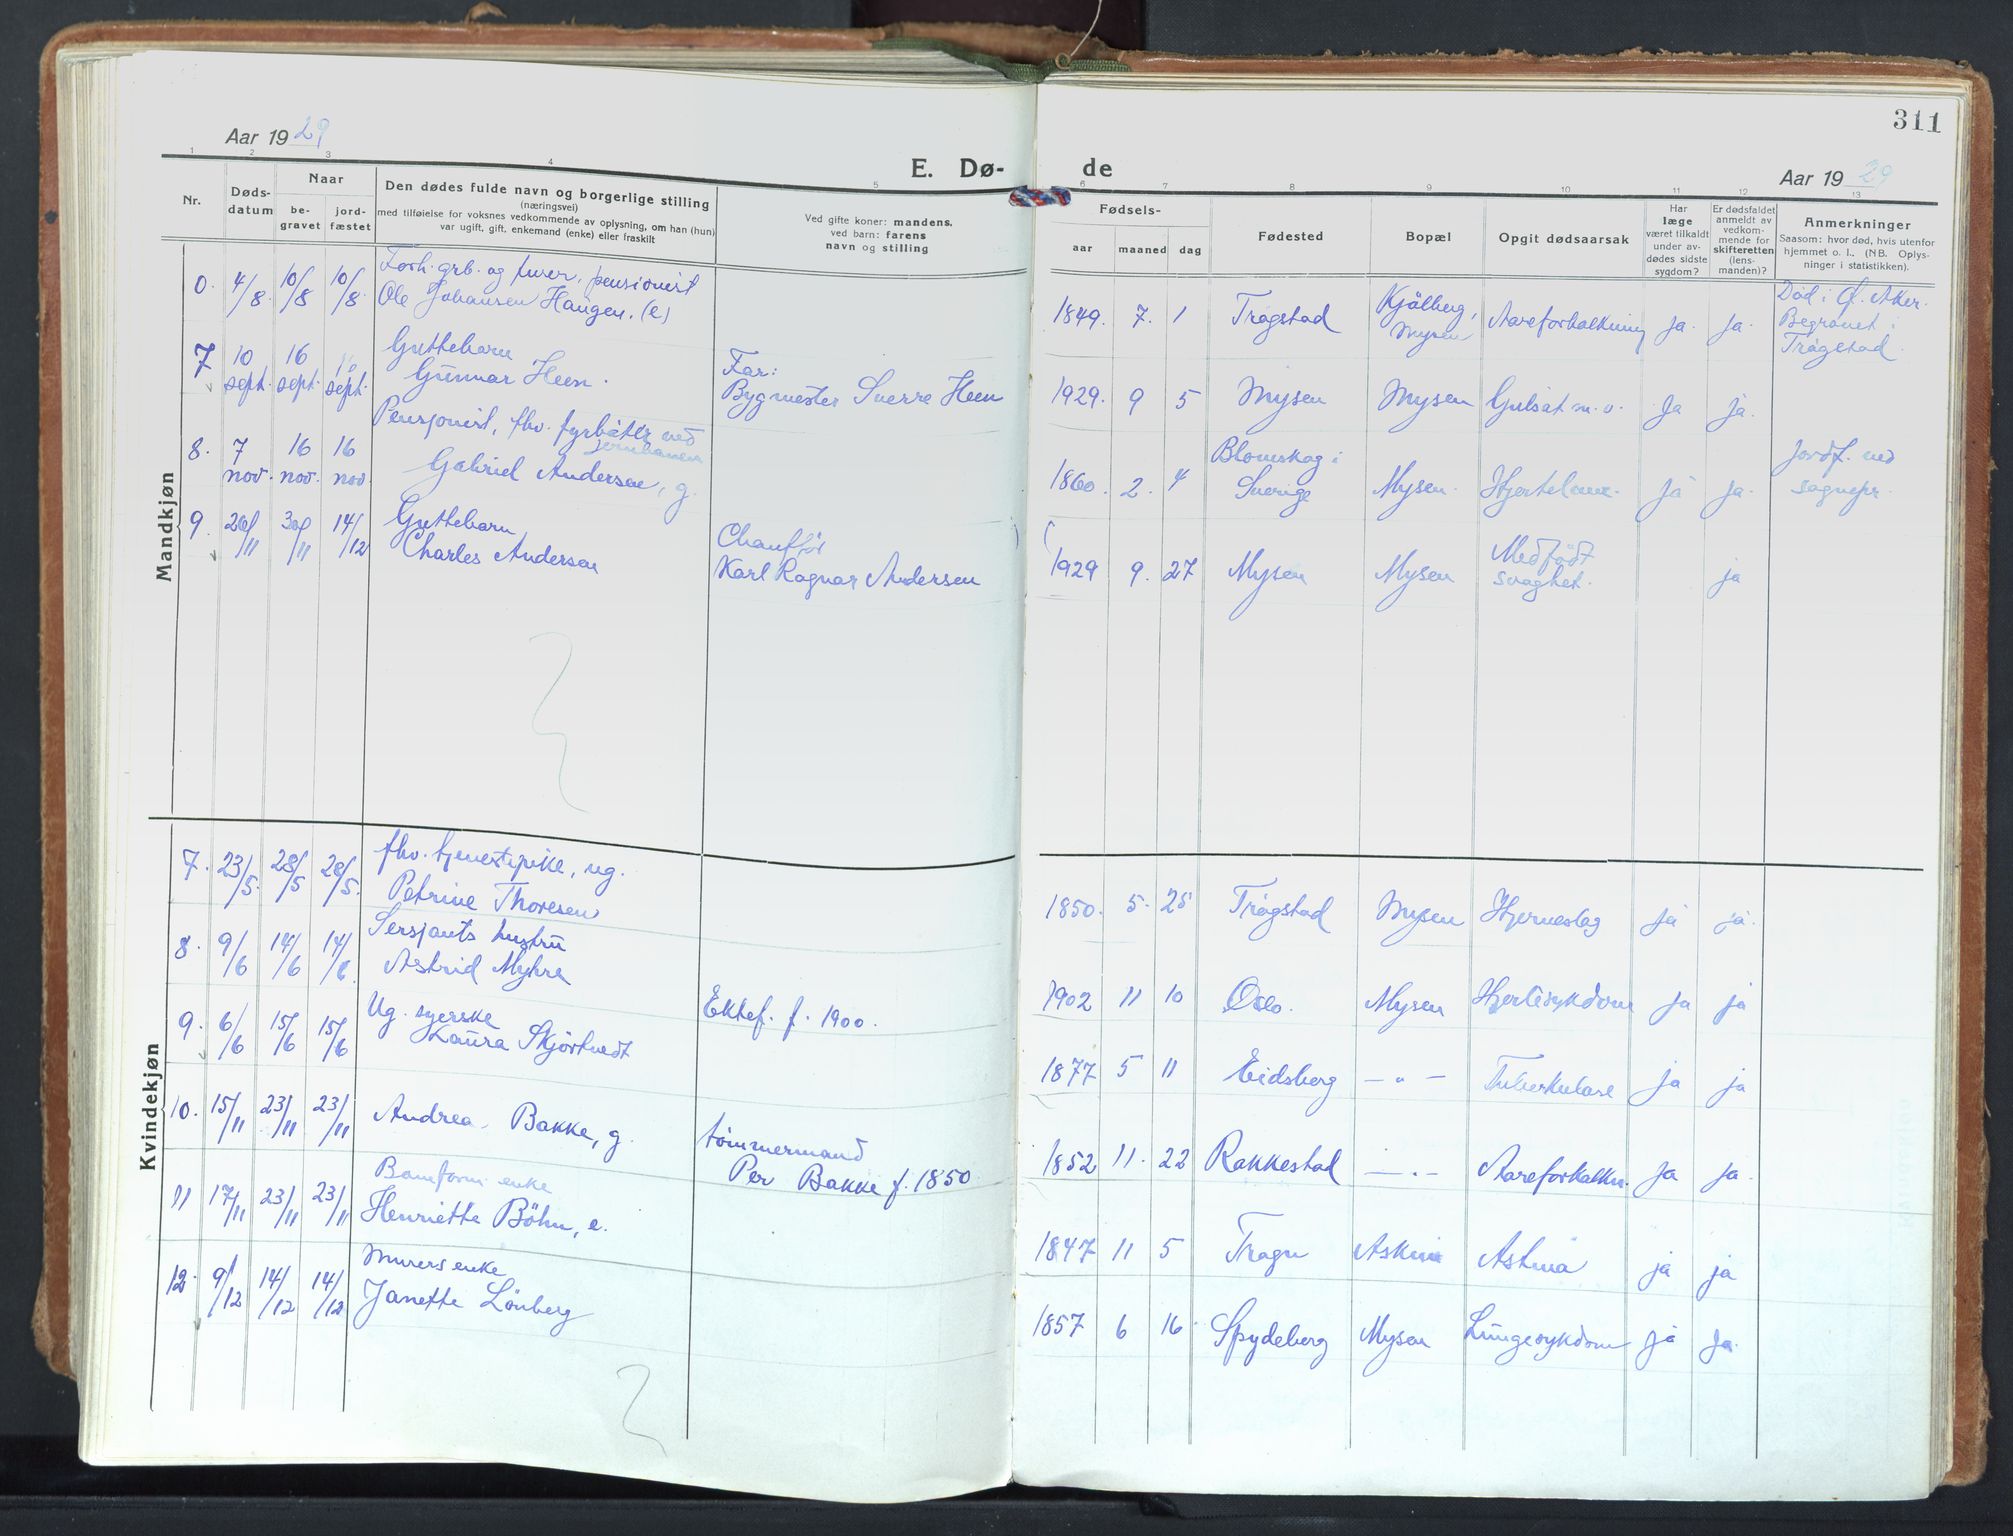 Aar 1929
E. Dø-
1 2 3 4 5
Nr.
Døds-
datum
Naar
be-
gravet
jord-
fæstet
Den dødes fulde navn og borgerlige stilling
(næringsvei)
med tilføielse for voksnes vedkommende av oplysning, om han (hun)
var ugift, gift, enkemand (enke) eller fraskilt
Ved gifte koner: mandens.
ved barn: farens
navn og stilling
Mandkjøn
0. 4/8. 10/8 10/8. Forh. grb. og furer, pensionist
Ole Johansen Haugen. (e)
7 10 sept. 16 sept. 16 sept. Guttebarn
Gunnar Heen.
Far:
Bygmester Sverre Heen
8. 7 nov. 16 nov. 16 nov. Pensjonist, fhv. fyrbøter ved
jernbanen
Gabriel Andersen, g.
9. 26/11 30/11 14/12 Guttebarn
Charles Andersen
Chauffør
Karl Ragnar Andersen
Kvindekjøn
7. 23/5. 28/5 28/5. fhv. tjenestepike, ug.
Petrine Thoresen
8. 9/6 14/6 14/6. Sersjants hustru
Astrid Myhre
Ektef. f. 1900.
9. 6/6 15/6 15/6 Ug. syerske
Laura Skjørtvedt
10. 15/11 23/11 23/11 Andrea Bakke, g.
tømmermand
Per Bakke f. 1850.
11 17/11 23/11 23/11 enke
Henriette Böhn, e.
12. 9/12 14/12 14/12 Murers enke
Janette Lönberg
311
de
Aar 1929
6 7 8 9 10 11 12 13
Fødsels-
aar maaned dag
Fødested
Bopæl
Opgit dødsaarsak
Har
læge
været tilkaldt
under av-
dødes sidste
sygdom?
Er dødsfaldet
anmeldt av
vedkom-
mende for
skifteretten
(lens-
manden)?
Anmerkninger
Saasom: hvor død, hvis utenfor
hjemmet o. l.. (NB. Oplys-
ninger i statistikken).
1849. 7. 1 Trøgstad Kjølberg, Mysen Aareforkalkning ja. ja. Død i Ø. Aker.
Begravet i
Trøgstad.
1929. 9 5 Mysen Mysen Gulsot m. v. Ja ja.
1860. 2. 4 Blomskog i
Sverige Mysen. Ja ja. Jordf. ved
sognepr.
1929 9. 27 Mysen Mysen Medfødt
svaghet. ja
1850. 5. 25 Trøgstad Mysen Hjerneslag ja ja.
1902 11 10 Oslo. Mysen Hjertesykdom ja ja
1877 5 11 Eidsberg — " — Tuberkulose ja ja
1852 11. 22 Rakkestad — " — Aareforkalkn. ja ja.
1847 11 5 Askim Astma ja ja
1857 6 16. Spydeberg Mysen Lungesykdom ja ja.